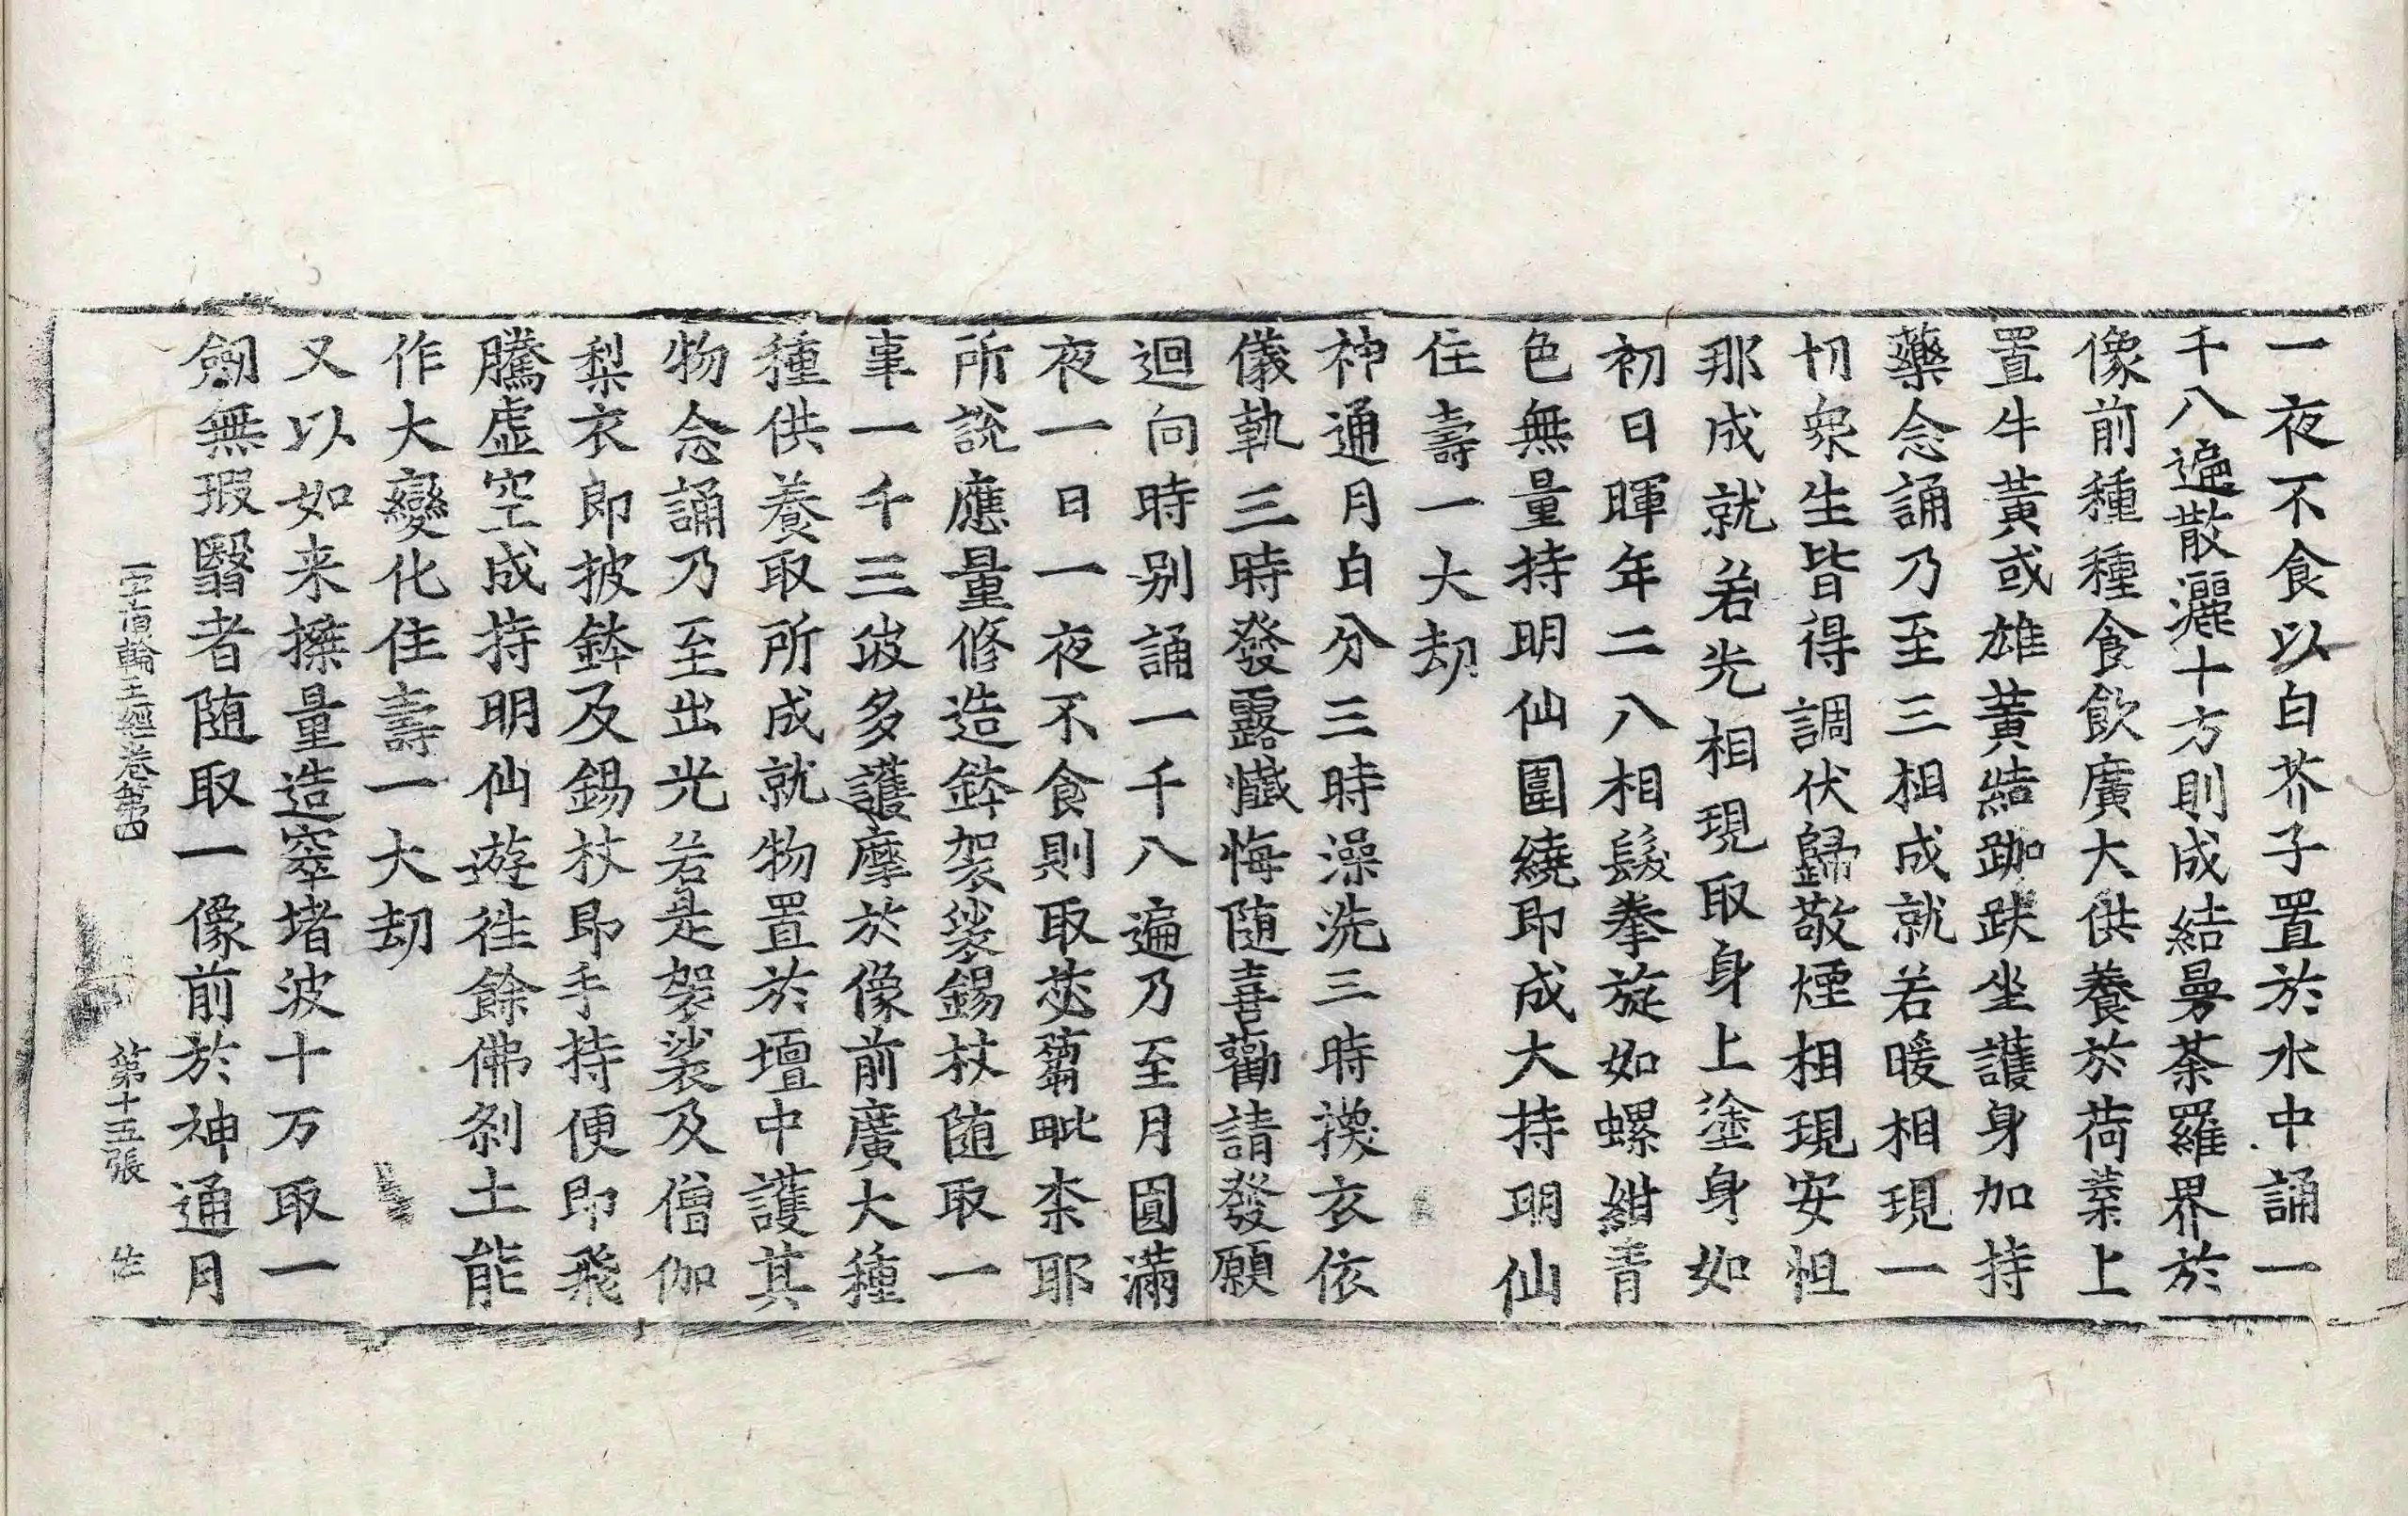 一夜不食以白芥子置於水中誦一
千八遍散灑十方則成結曼荼羅界於
像前種種食飲廣大供養於荷葉上
置牛黃或雄黃結跏趺坐護身加持
藥念誦乃至三相成就若暖相現一
切衆生皆得調伏歸敬煙相現安怛
那成就若光相現取身上塗身如
初日暉年二八相髮拳旋如螺紺青
色無量持明仙圍繞即成大持明仙
住壽一大劫
神通月白分三時澡洗三時換衣依
儀軌三時發露懺悔随喜勸請發願
迴向時別誦一千八遍乃至月圓滿
夜一日一夜不食則取苾蒭毗柰耶
所說應量修造鉢袈裟錫杖随取一
事一千三波多護摩於像前廣大種
種供養取所成就物置於壇中護其
物念誦乃至出光若是袈裟及僧伽
梨衣即披鉢及錫杖即手持便即飛
騰虛空成持明仙遊往餘佛剎土能
作大變化住壽一大劫
又以如来搩量造窣堵波十万取一
劒無瑕翳者随取一像前於神通月
一字頂輪王經卷第四 第十五張 性